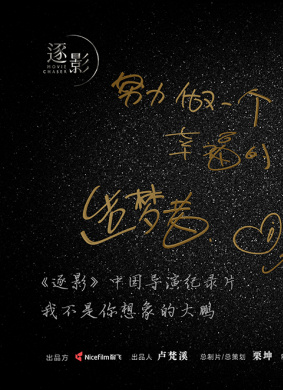 逐影
MOVIE
CHASER
努力做一个
幸福的
造梦者
《逐影》中国导演纪录片
我不是你想象的大鹏
出品方 Nicefilm耐飞 出品人 卢梵溪 总制片/总策划 栗坤